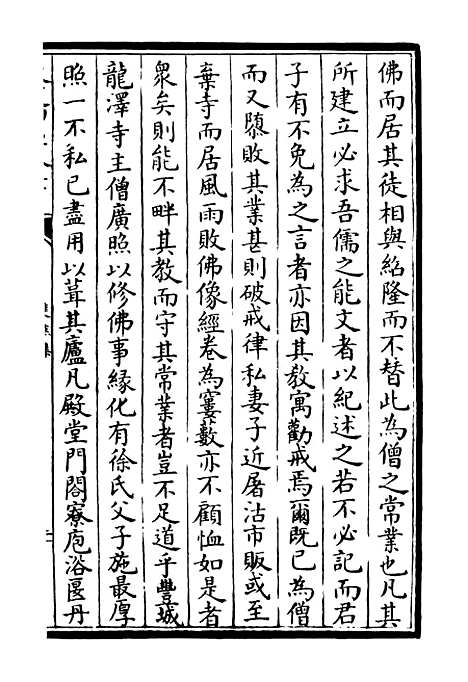 佛而居其徒相與紹隆而不替此為僧之常業也凡其
所建立必求吾儒之能文者以紀述之若不必記而君
子有不免為之言者亦因其教寓勸戒焉爾既已為僧
而又隳敗其業甚則破戒律私妻子近屠沽市販或至
棄寺而居風雨敗佛像經卷為窶藪亦不顧恤如是者
衆矣則能不畔其教而守其常業者豈不足道乎豐城
龍澤寺主僧廣照以修佛事緣化有徐氏父子施最厚
照一不私已盡用以葺其廬凡殿堂門閣寮庖浴偃丹